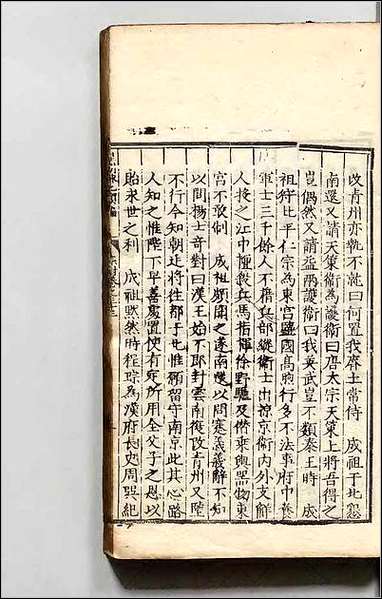 改青州亦執不就曰何置我瘠土常侍　成祖于北
南還又請天策衛為護衛曰唐太宗天策上將吾得之
豈偶然又請益兩護衛曰我英武豈不類秦王時　成
祖狩北平仁宗為東宮監國高煦行多不法事府中養
軍士三千餘人不籍兵部縱衛士出掠京衛內外支解
人投之江中擅殺兵馬指揮徐野驢及僭乘輿器物東
宮不敢制　成祖頗聞之還南遂以問蹇義義辭不知
以問楊士奇對曰漢王始不即封雲南復改青州又陞
不行今知朝廷將徙都乎也惟願留守南京此其心路
人知之惟陛下早善處置使有定所用全父子之恩以
貽永世之利　成祖默然時程琮為漢府長史周巽紀